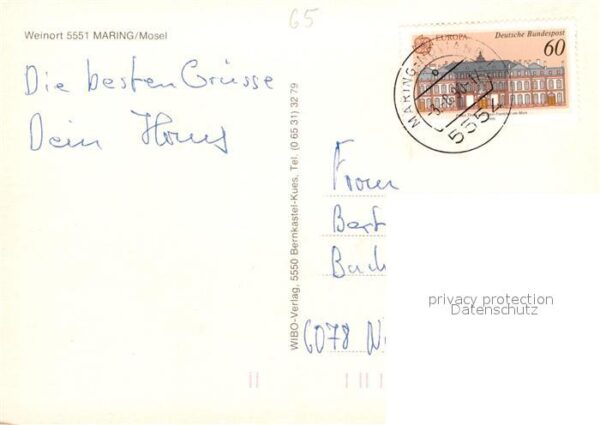 65
Weinort 5551 MARING/Mosel
Die besten Grüsse
Dein Hans
WIBO-Verlag, 5550 Bernkastel-Kues, Tel. (0 65 31) 32 79
EUROPA
Deutsche Bundespost
60
MARING-
5552
Frau
Bert
Bach
6078 N
privacy protection
Datenschutz